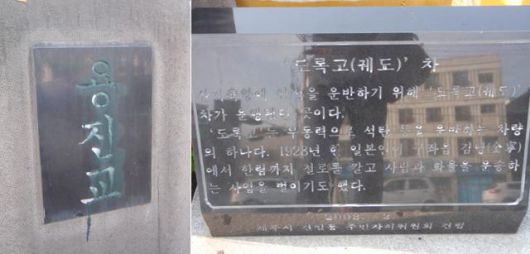 용진교
'도록고(궤도)' 차
운반하기 위해 '도록고(궤도)'
차가 곳이다.
'도록고'는 무동력으로 석탄 등을 운반하는 차량
의 하나다. 1928년 한 일본인이
에서 한림까지 철로를 깔고 사람과 화물을 운송하
는 사업을 벌이기도 했다.
2008. 2.
제주시 건입동 주민자치위원회 건립